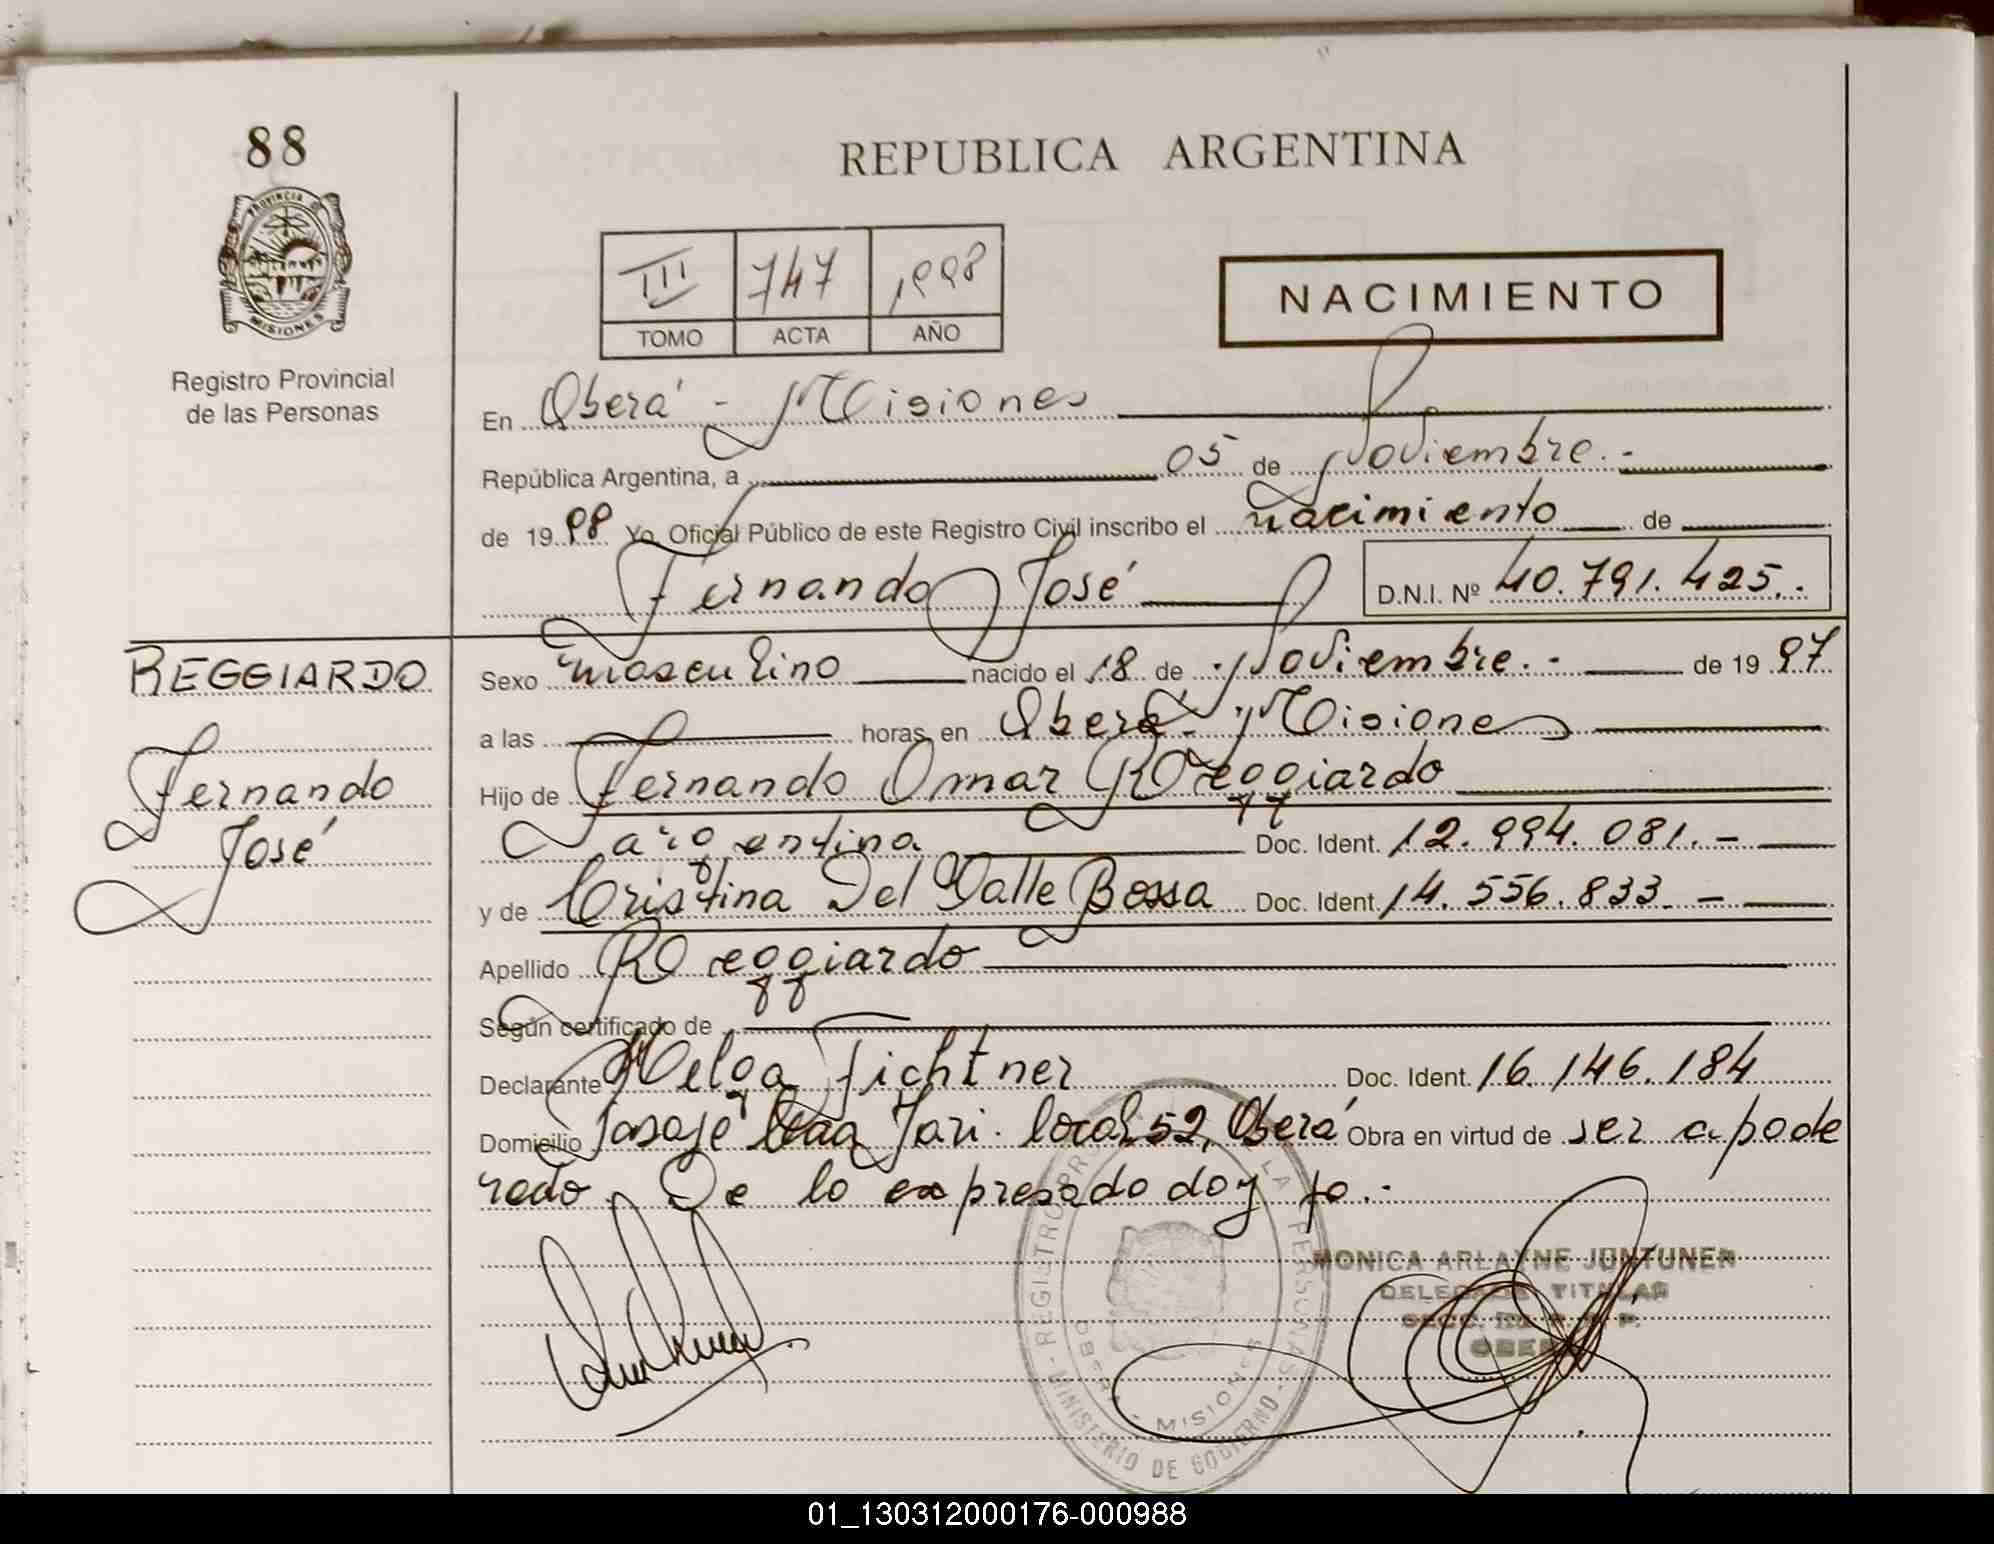 88
REPUBLICA ARGENTINA
PROVINCIA D
MISIONES
III 747 1998
TOMO ACTA AÑO
NACIMIENTO
Registro Provincial
de las Personas
En Oberá - Misiones
República Argentina, a 05 de Noviembre.-
de 1998 Yo, Oficial Público de este Registro Civil inscribo el nacimiento de
Fernando José D.N.I. Nº 40.791.425.-
REGGIARDO
Fernando
José
Sexo masculino nacido el 18 de Noviembre.- de 1997
a las horas, en Oberá - Misiones
Hijo de Fernando Omar Reggiardo
argentina Doc. Ident. 12.994.081.-
y de Cristina Del Valle Bossa Doc. Ident. 14.556.833.-
Apellido Reggiardo
Según certificado de
Declarante Helga Fichtner Doc. Ident. 16.146.184
Domicilio Pasaje local 52, Oberá Obra en virtud de ser apode
rado. De lo expresado doy fe.-
MONICA ARLAYNE JUNTUNEN
DELEGADA TITULAR
SECC. R. P.
OBERA
REGISTRO PR LA PERSONAS
MINISTERIO DE GOBIERNO
OBERA - MISIONES
01_130312000176-000988